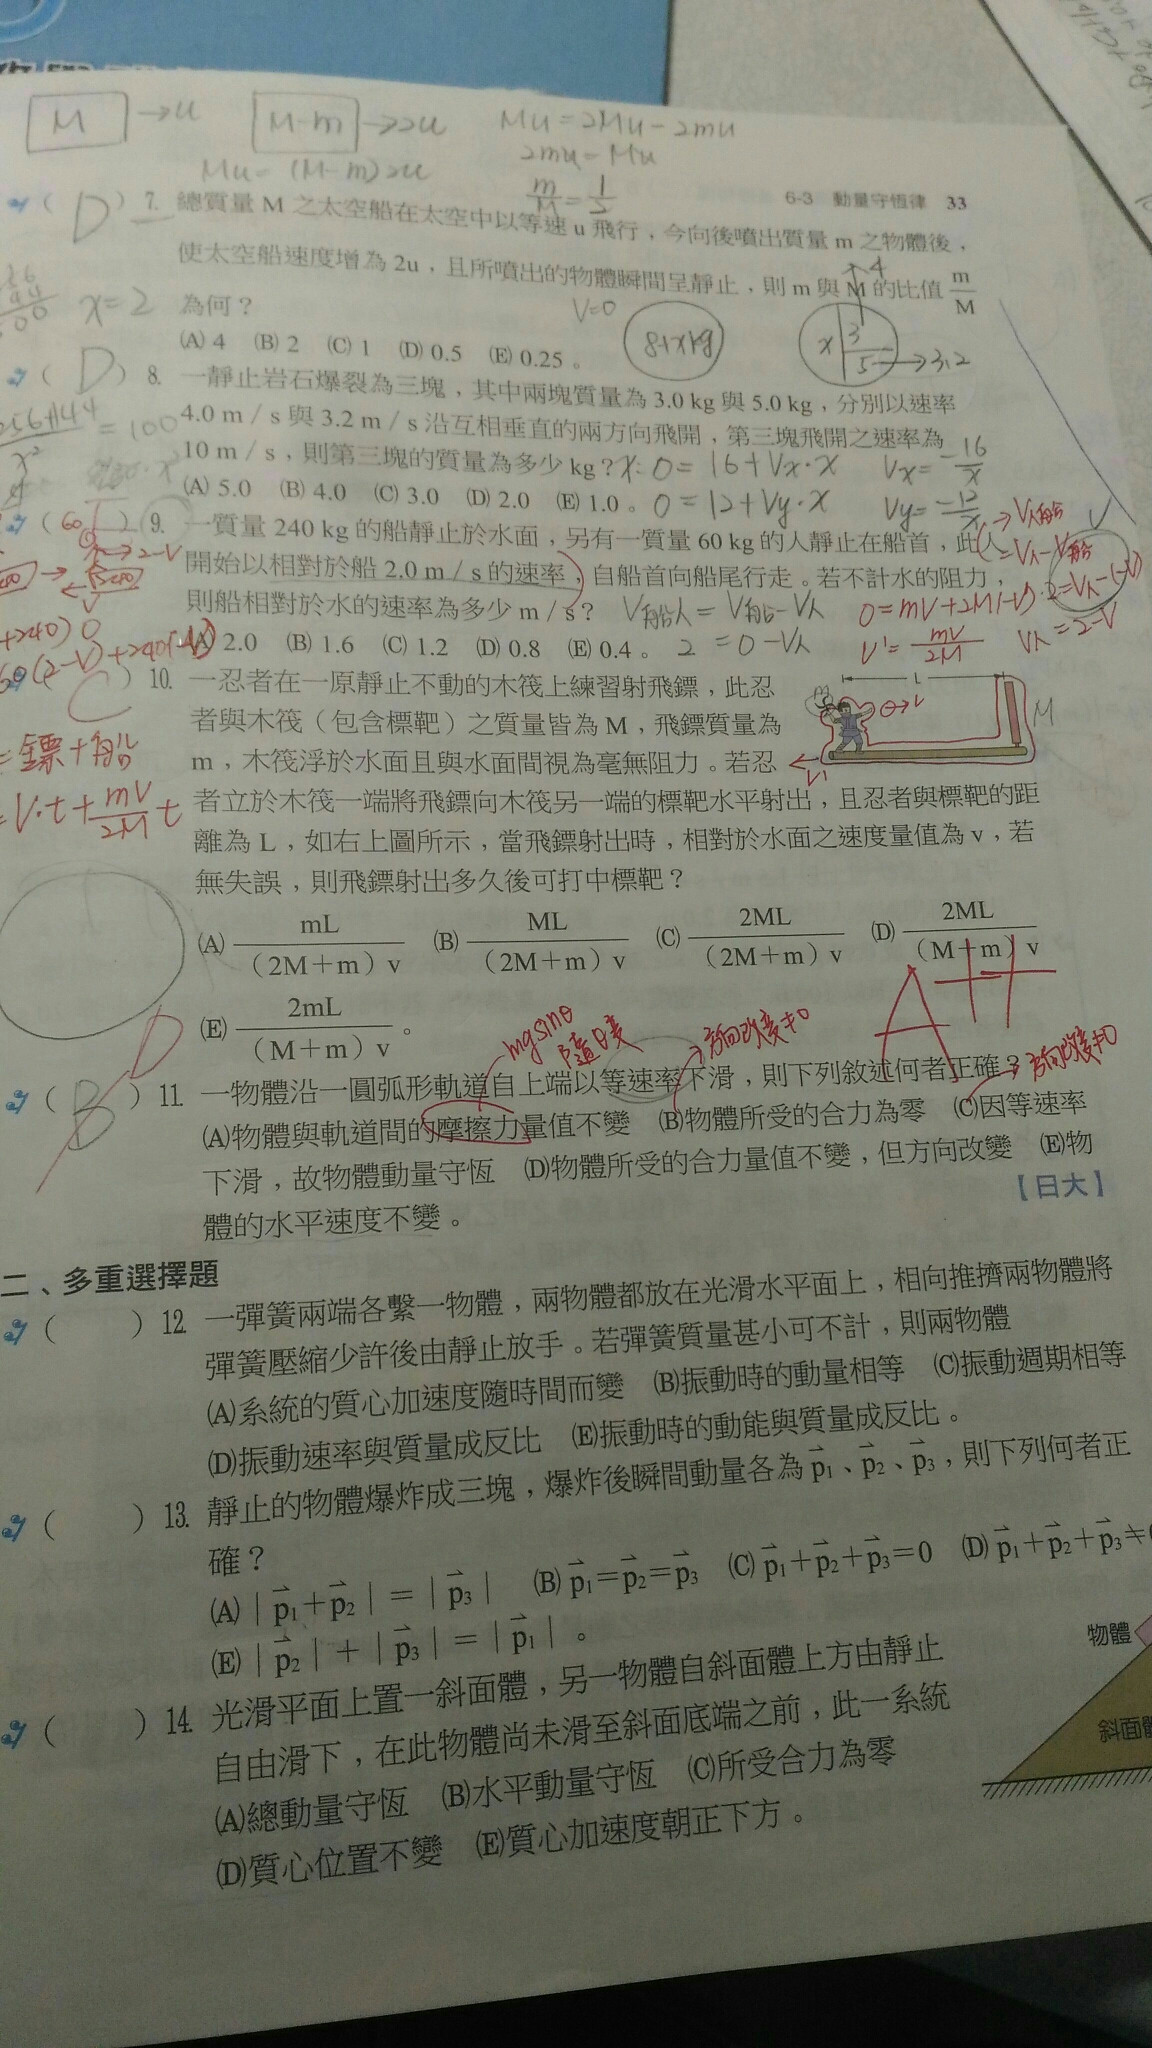 M →u
M-m →2u
Mu=2Mu-2mu
2mu=Mu
Mu=(M-m)2u
m/M=1/2
6-3 動量守恆律 33
(D) 7. 總質量 M 之太空船在太空中以等速 u 飛行，今向後噴出質量 m 之物體後，
使太空船速度增為 2u，且所噴出的物體瞬間呈靜止，則 m 與 M 的比值 m/M
為何？
V=0
x=2
(A) 4 (B) 2 (C) 1 (D) 0.5 (E) 0.25。
8+x kg
x 3 5 →3.2
4
(D) 8. 一靜止岩石爆裂為三塊，其中兩塊質量為 3.0 kg 與 5.0 kg，分別以速率
4.0 m / s 與 3.2 m / s 沿互相垂直的兩方向飛開，第三塊飛開之速率為
10 m / s，則第三塊的質量為多少 kg？
x: 0=16+Vx·x Vx=-16/x
(A) 5.0 (B) 4.0 (C) 3.0 (D) 2.0 (E) 1.0。
0=12+Vy·x Vy=-12/x
256+144/x²=100
9. 一質量 240 kg 的船靜止於水面，另有一質量 60 kg 的人靜止在船首，此人
開始以相對於船 2.0 m / s 的速率，自船首向船尾行走。若不計水的阻力，
則船相對於水的速率為多少 m / s？
V船人=V船-V人
2=0-V人
0=mV+2M(-V')
V'=mV/2M
V人船
=V人-V船
2=V人-(-V)
V人=2-V
(A) 2.0 (B) 1.6 (C) 1.2 (D) 0.8 (E) 0.4。
(C) 10. 一忍者在一原靜止不動的木筏上練習射飛鏢，此忍
者與木筏（包含標靶）之質量皆為 M，飛鏢質量為
m，木筏浮於水面且與水面間視為毫無阻力。若忍
者立於木筏一端將飛鏢向木筏另一端的標靶水平射出，且忍者與標靶的距
離為 L，如右上圖所示，當飛鏢射出時，相對於水面之速度量值為 v，若
無失誤，則飛鏢射出多久後可打中標靶？
L
M
=鏢+船
=V·t+mV/2M t
(A) mL/(2M＋m)v (B) ML/(2M＋m)v (C) 2ML/(2M＋m)v (D) 2ML/(M＋m)v
(E) 2mL/(M＋m)v。
A++
mgsinθ
隨θ變
方向改變≠0
方向改變≠0
D
(B) 11. 一物體沿一圓弧形軌道自上端以等速率下滑，則下列敘述何者正確？
(A)物體與軌道間的摩擦力量值不變 (B)物體所受的合力為零 (C)因等速率
下滑，故物體動量守恆 (D)物體所受的合力量值不變，但方向改變 (E)物
體的水平速度不變。 【日大】
二、多重選擇題
( ) 12. 一彈簧兩端各繫一物體，兩物體都放在光滑水平面上，相向推擠兩物體將
彈簧壓縮少許後由靜止放手。若彈簧質量甚小可不計，則兩物體
(A)系統的質心加速度隨時間而變 (B)振動時的動量相等 (C)振動週期相等
(D)振動速率與質量成反比 (E)振動時的動能與質量成反比。
( ) 13. 靜止的物體爆炸成三塊，爆炸後瞬間動量各為 p⃗₁、p⃗₂、p⃗₃，則下列何者正
確？
(A)｜p⃗₁＋p⃗₂｜＝｜p⃗₃｜ (B) p⃗₁＝p⃗₂＝p⃗₃ (C) p⃗₁＋p⃗₂＋p⃗₃＝0 (D) p⃗₁＋p⃗₂＋p⃗₃≠
(E)｜p⃗₂｜＋｜p⃗₃｜＝｜p⃗₁｜。
( ) 14. 光滑平面上置一斜面體，另一物體自斜面體上方由靜止
自由滑下，在此物體尚未滑至斜面底端之前，此一系統
(A)總動量守恆 (B)水平動量守恆 (C)所受合力為零
(D)質心位置不變 (E)質心加速度朝正下方。
物體
斜面體